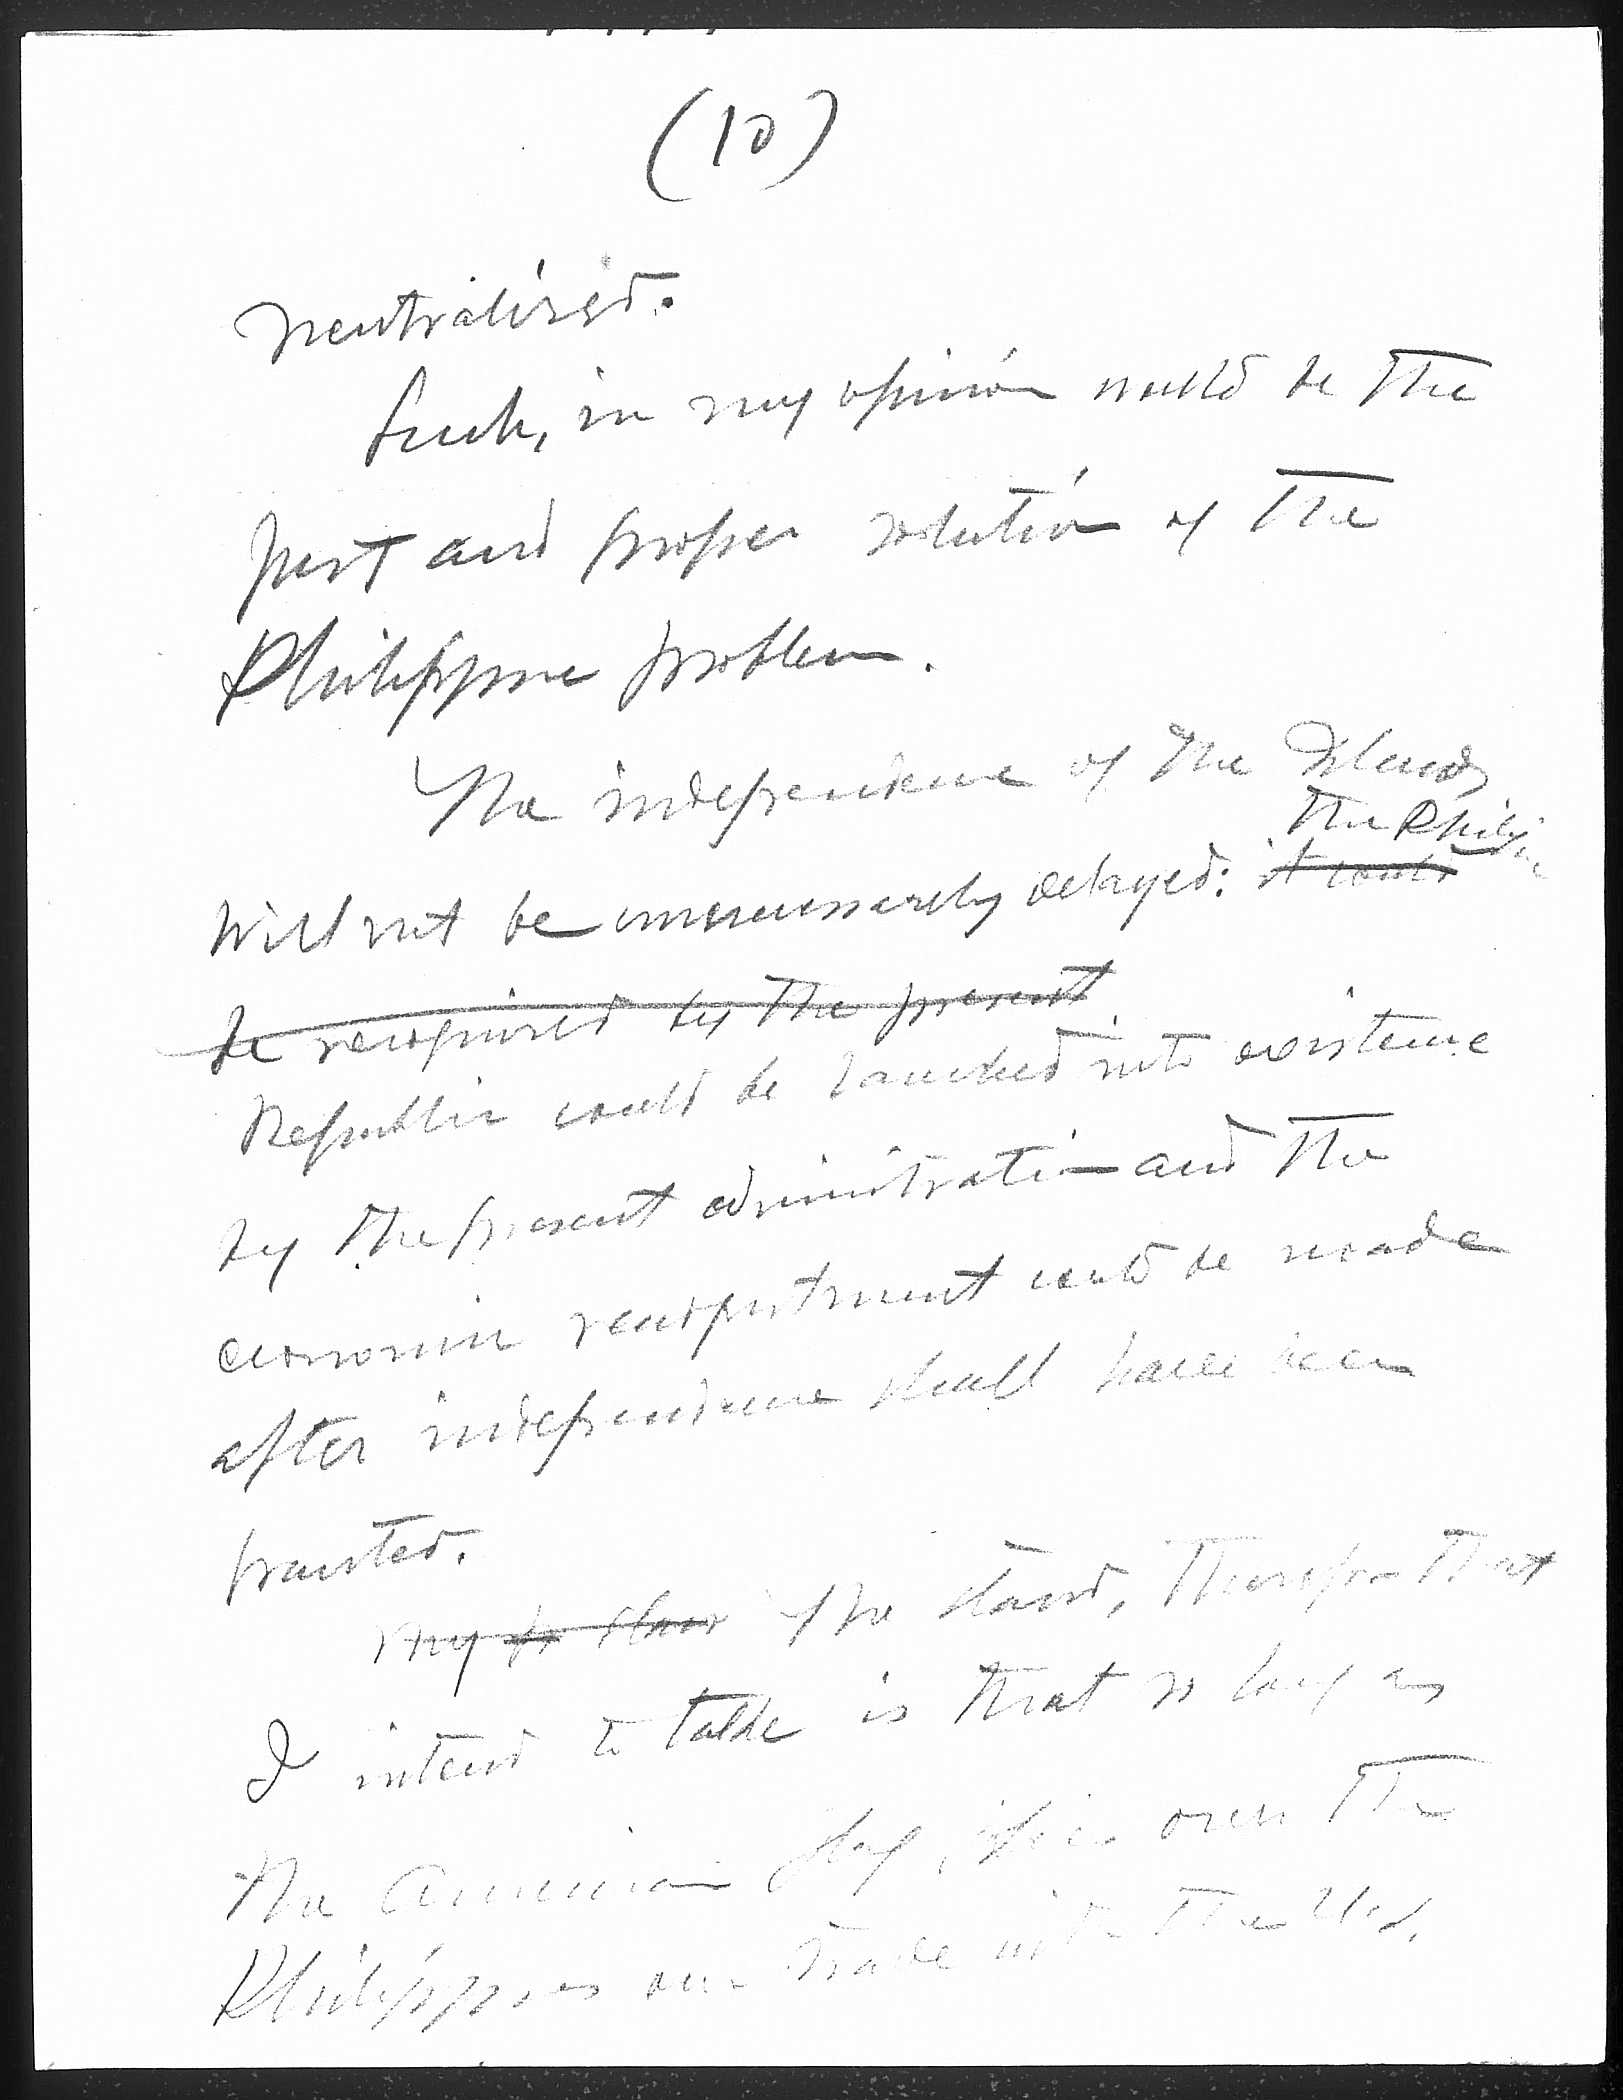 (10)
neutralized.
Such, in my opinion would be the
just and proper solution of the
Philippine problem.
The independence of the Islands
will not be unnecessarily delayed: it could The Philippine
be recognized by the present
Republic could be launched into existence
by the present administration and the
economic readjustment could be made
after independence shall have been
granted.
my to stand The stand, therefore that
I intend to take is that so long as
the American flag flies over the
Philippines our trade with the U.S.